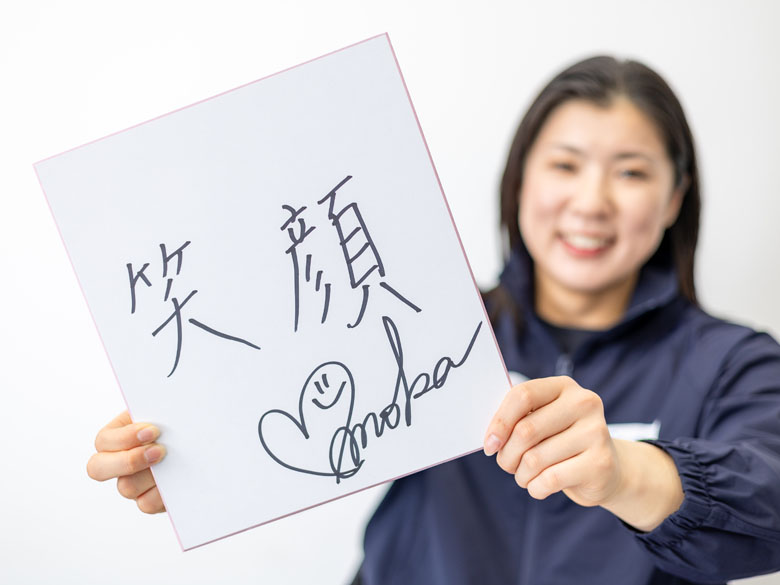 笑顔
moka